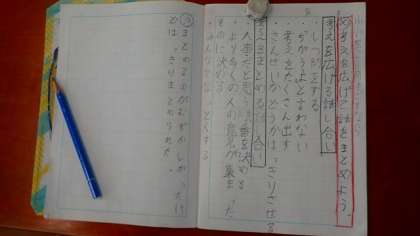 め考えを広げて話をまとめよう。
考えを広げる話し合い
・しつもんをする
・ちがうよと言わない
・考えをたくさん出す
・さんせいかどうかはっきりさせる
考えをまとめる話し合い
・大事だと思う一番を決める
・より多くの人の意見が集まった
ものに決める
まとめるのがむずかしかったけ
ど、はっきりまとめられた。